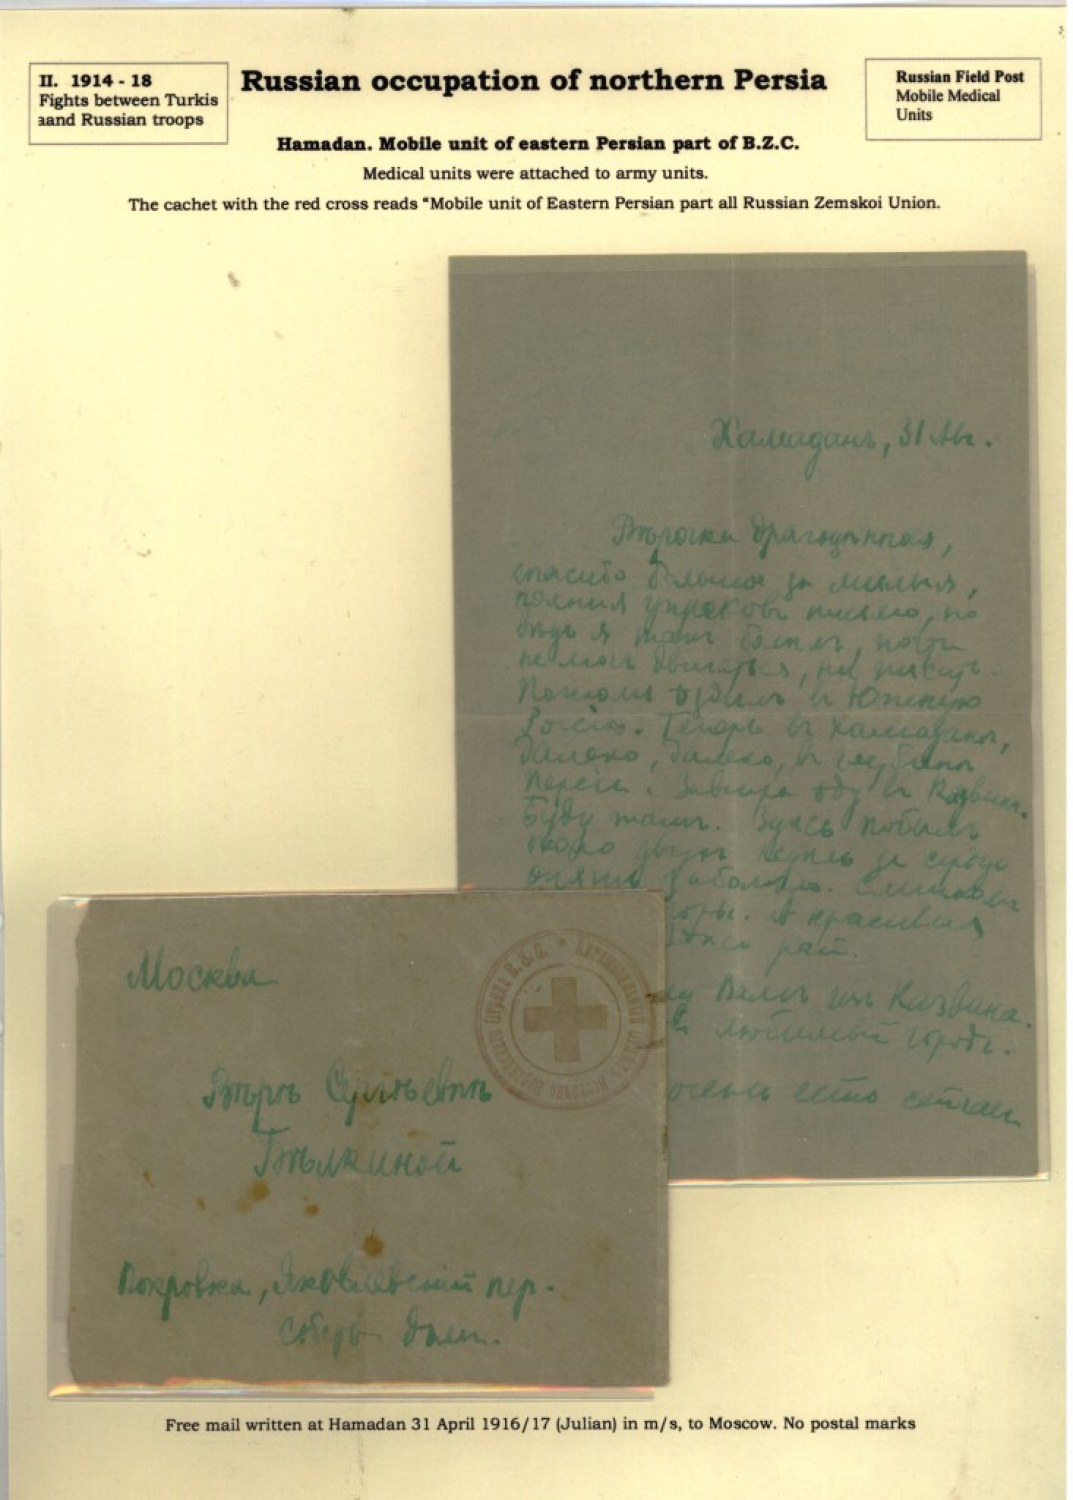 II. 1914 - 18
Fights between Turkis
aand Russian troops
Russian occupation of northern Persia
Russian Field Post
Mobile Medical
Units
Hamadan. Mobile unit of eastern Persian part of B.Z.C.
Medical units were attached to army units.
The cachet with the red cross reads “Mobile unit of Eastern Persian part all Russian Zemskoi Union.
Хамаданъ, 31 Ав.
Вѣрочка драгоцѣнная,
спасибо большое за милыя,
полныя упрековъ письмо, но
вѣдь я такъ боленъ, почти
не могъ двигаться, ни писать.
Потомъ ѣздилъ въ Южную
Россію. Теперь въ Хамаданѣ,
далеко, далеко, въ глубинѣ
Персіи. Завтра ѣду въ Казвинъ.
Буду тамъ. Здѣсь побылъ
около двухъ недѣль да сердце
опять заболѣло. Слишкомъ
горы. А красивыя
Здѣсь рай.
изъ Казвина.
любимый городъ.
очень
Москва
В.З.С.
Вѣрѣ Сергѣевнѣ
Бѣлкиной
Покровка, Яковлевскій пер.
собств. домъ.
Free mail written at Hamadan 31 April 1916/17 (Julian) in m/s, to Moscow. No postal marks